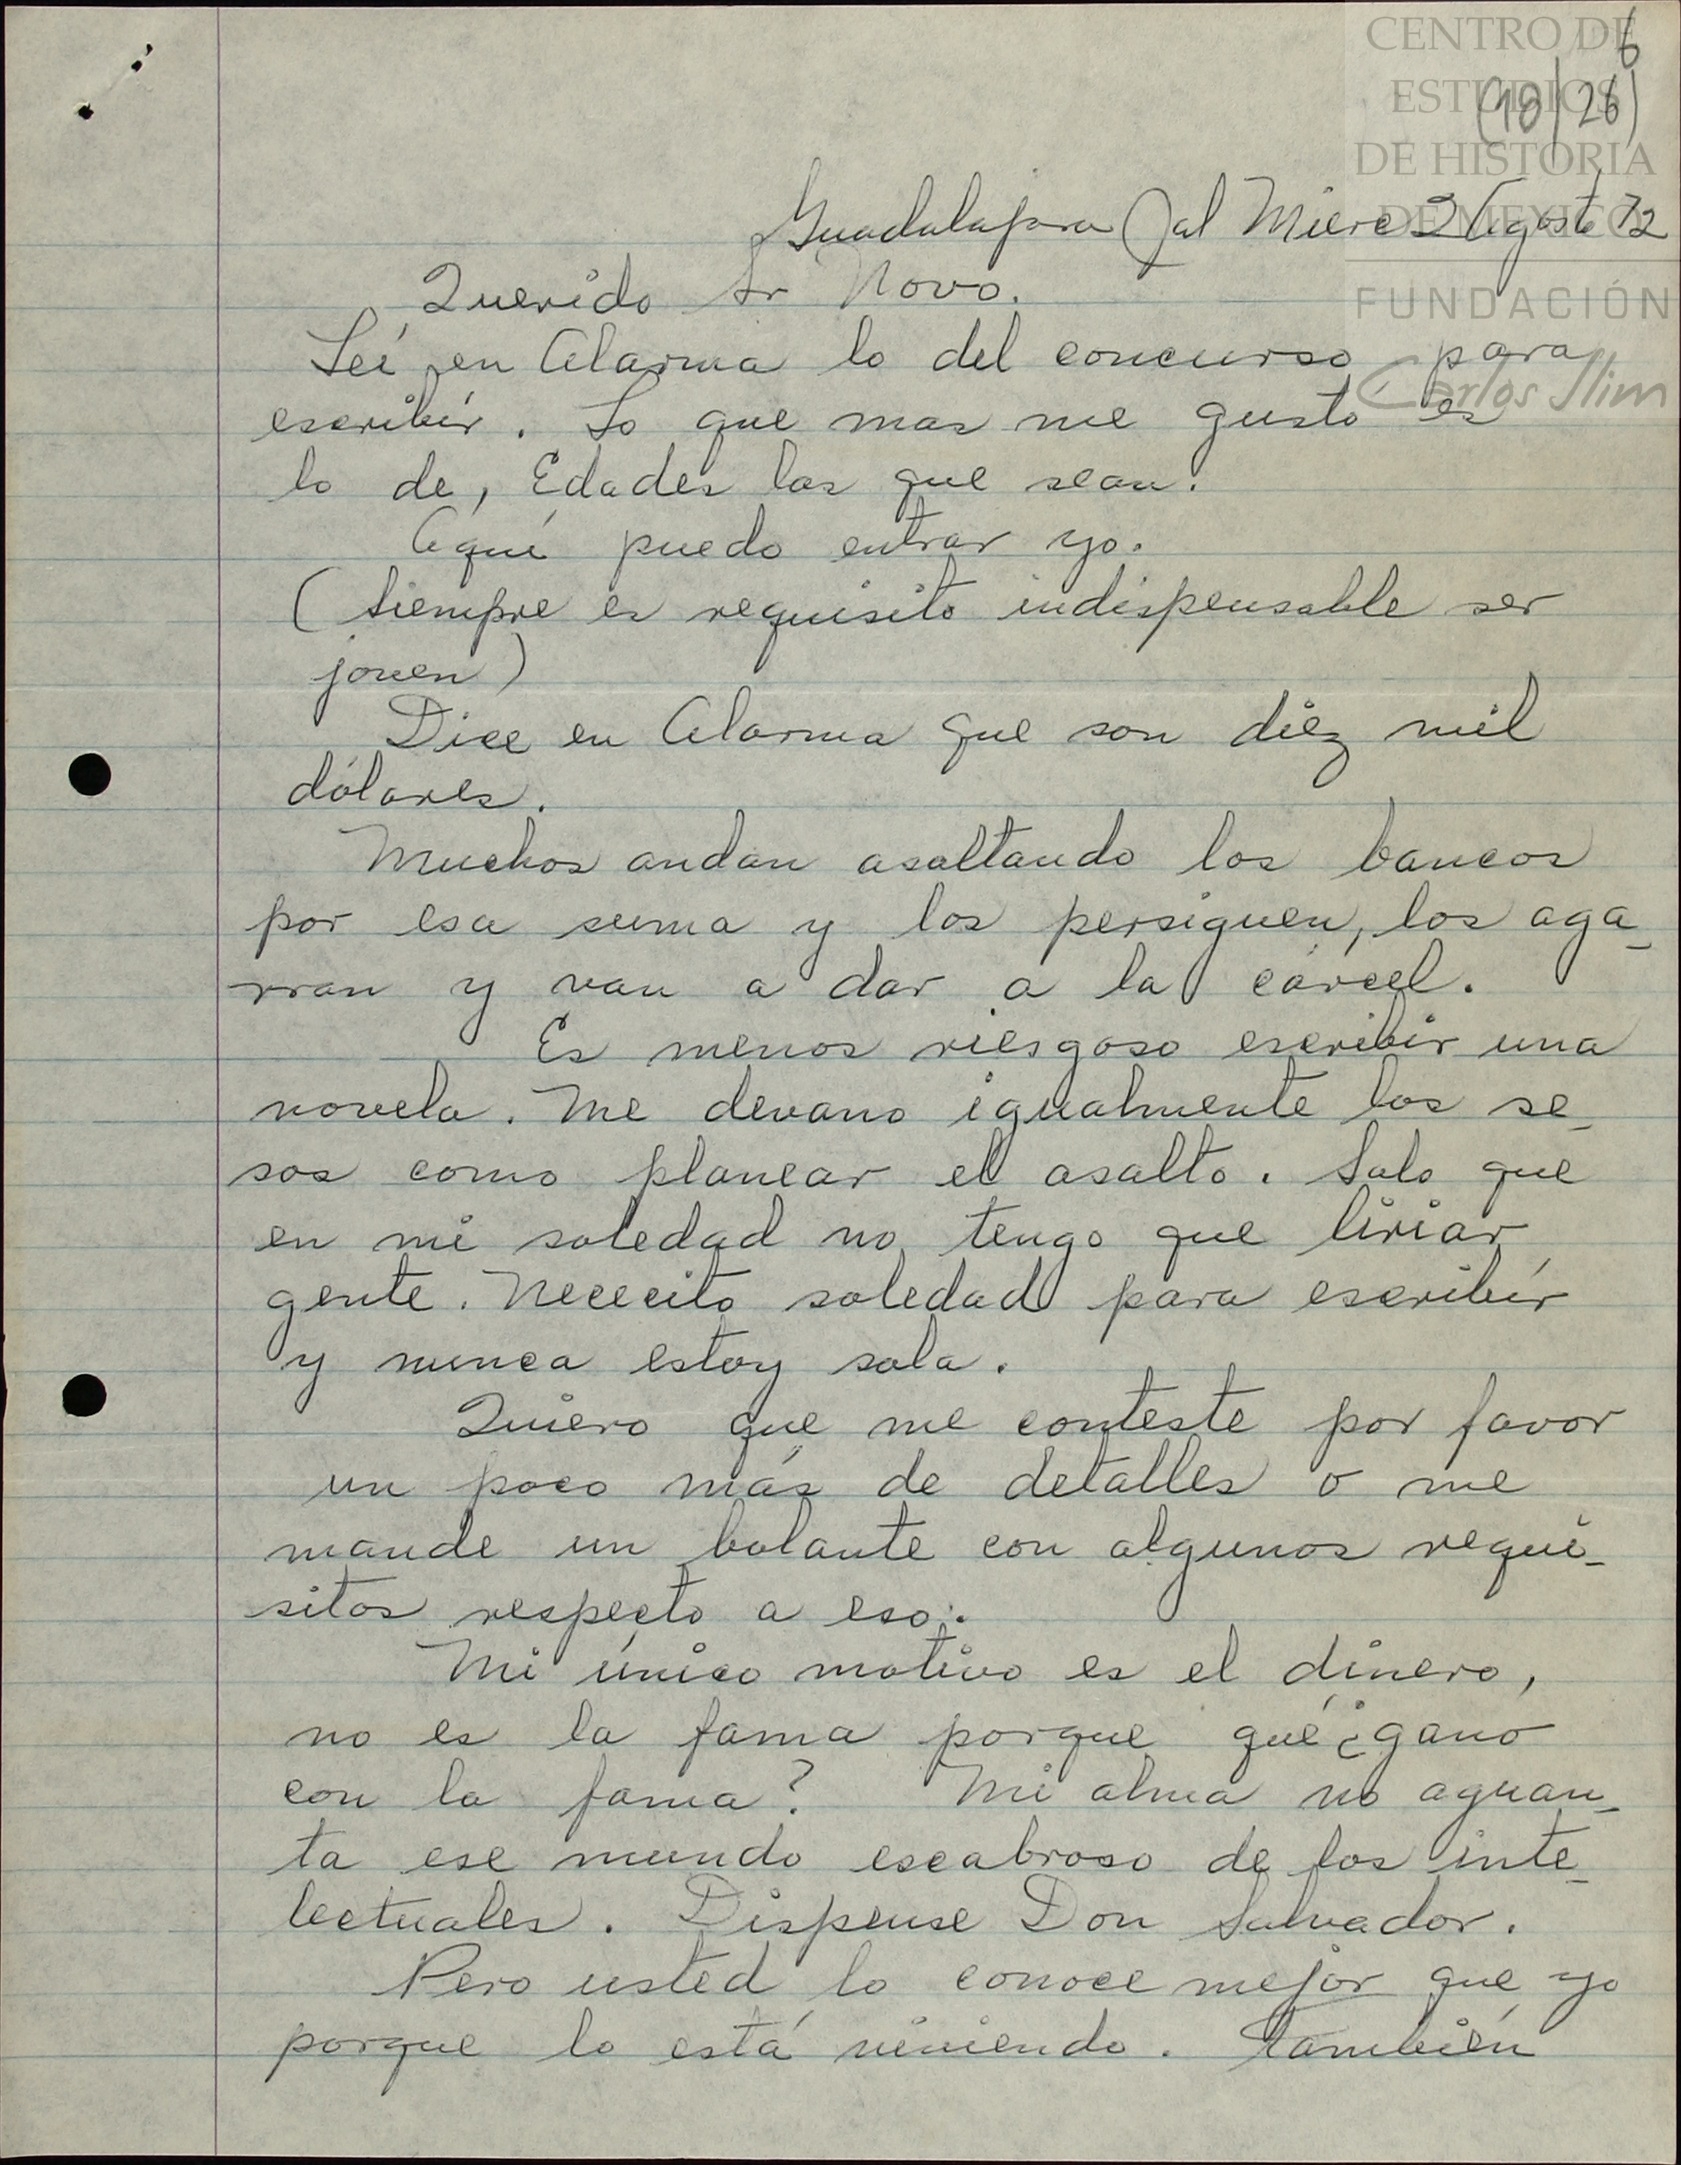 CENTRO DE
ESTUDIOS
DE HISTORIA
DE MEXICO
FUNDACIÓN
Carlos Slim
6
(10/26)
Guadalajara Jal Mierc 2 Agosto 72
Querido Sr Novo.
Leí en Alarma lo del concurso para
escribir. Lo que mas me gusto es
lo de, Edades las que sean.
Aquí puedo entrar yo.
(Siempre es requisito indispensable ser
joven)
Dice en Alarma que son diez mil
dólares.
Muchos andan asaltando los bancos
por esa suma y los persiguen, los aga-
rran y van a dar a la cárcel.
Es menos riesgoso escribir una
novela. Me devano igualmente los se-
sos como planear el asalto. Salo que
en mi soledad no tengo que liriar
gente. Nececito soledad para escribír
y nunca estoy sola.
Quiero que me conteste por favor
un poco más de detalles o me
mande un bolante con algunos requi-
sitos respecto a eso.
Mi único motivo es el dinero,
no es la fama porque qué ¿gano
con la fama? Mi alma no aguan-
ta ese mundo escabroso de los inte-
lectuales. Dispense Don Salvador.
Pero usted lo conoce mejor que yo
porque lo está viviendo. También